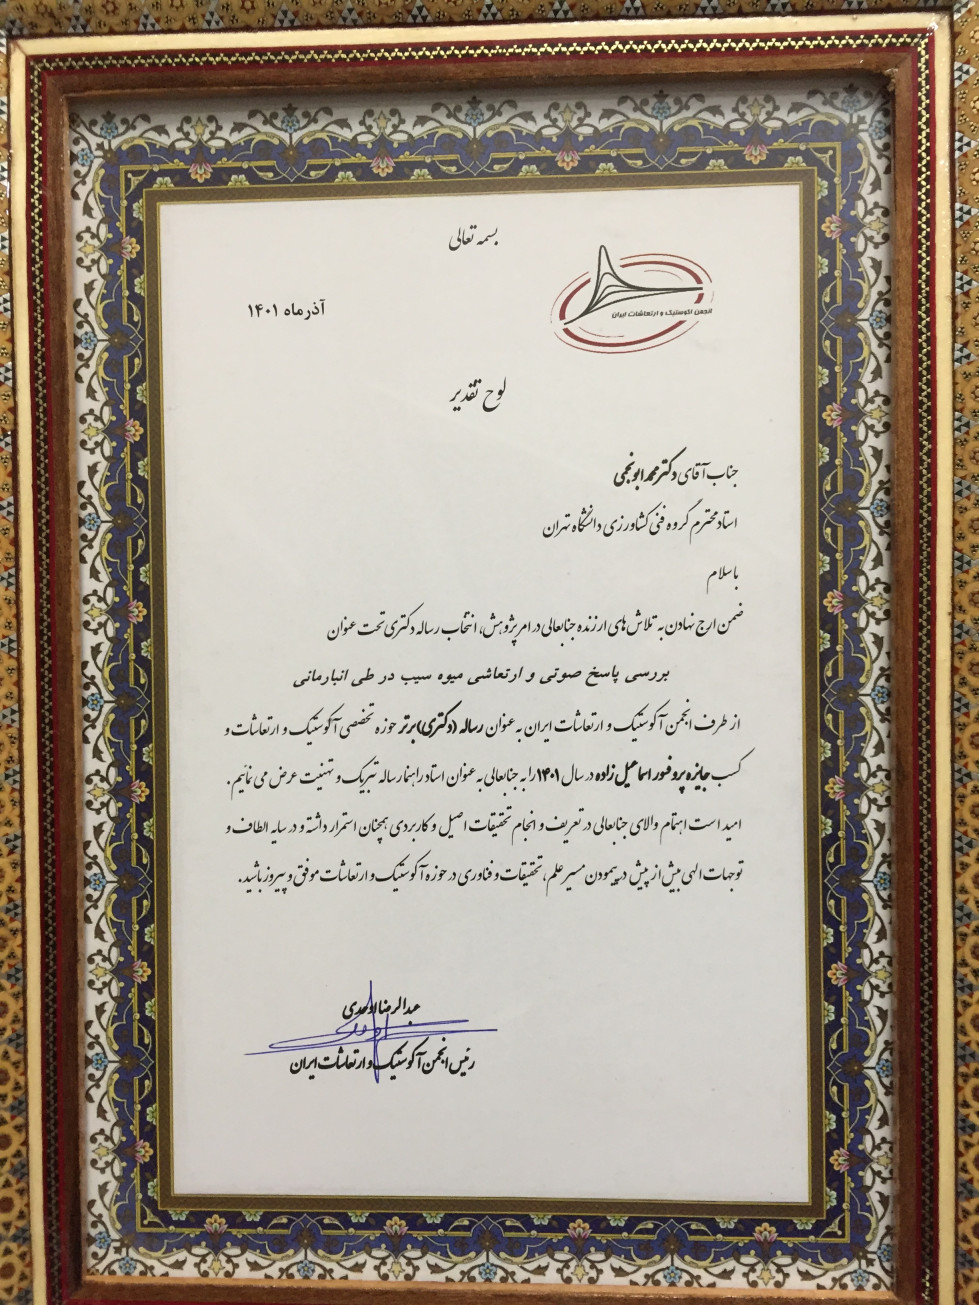 بسمه تعالی
انجمن آکوستیک و ارتعاشات ایران
آذر ماه ۱۴۰۱
لوح تقدیر
جناب آقای دکتر محمد ابونجمی
استاد محترم گروه فنی کشاورزی دانشگاه تهران
با سلام
ضمن ارج نهادن به تلاش های ارزنده جنابعالی در امر پژوهش، انتخاب رساله دکتری تحت عنوان
بررسی پاسخ صوتی و ارتعاشی میوه سیب در طی انبارمانی
از طرف انجمن آکوستیک و ارتعاشات ایران به عنوان رساله (دکتری) برتر حوزه تخصصی آکوستیک و ارتعاشات و
کسب جایزه پروفسور اسماعیل زاده در سال ۱۴۰۱ را به جنابعالی به عنوان استاد راهنما رساله تبریک و تهنیت عرض می نمائیم.
امید است اهتمام والای جنابعالی در تعریف و انجام تحقیقات اصیل و کاربردی همچنان استمرار داشته و در سایه الطاف و
توجهات الهی بیش از پیش در پیمودن مسیر علم، تحقیقات و فناوری در حوزه آکوستیک و ارتعاشات موفق و پیروز باشید.
عبدالرضا اوحدی
رئیس انجمن آکوستیک و ارتعاشات ایران